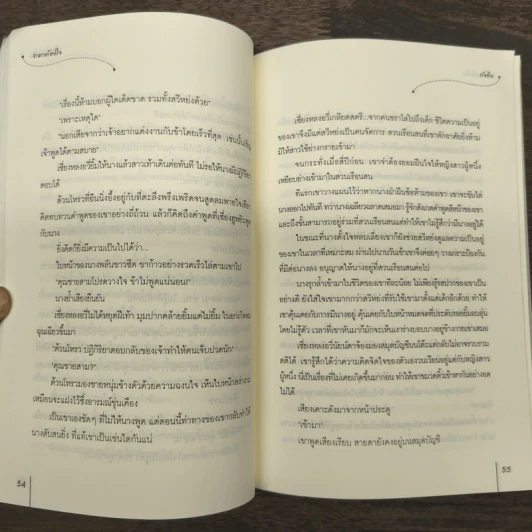 "เรื่องนี้ห้ามบอกผู้ใดเด็ดขาด รวมทั้งสวีหย่งด้วย"
"เพราะเหตุใด"
"นอกเสียจากว่าเจ้าอยากแต่งงานกับข้าโดยเร็วที่สุด เช่นนั้นเชิญ
เจ้าพูดได้ตามสบาย"
เซี่ยงหลงอวี่ยิ้มให้นางแล้วสาวเท้าเดินต่อทันที ไม่รอให้นางมีปฏิกิริยา
ตอบได้
ด้วนโหรวที่ยืนนิ่งอึ้งอยู่กับที่ตะลึงพรึงเพริดจนสูดลมหายใจเฮือก
คิดทบทวนคำพูดของเขาอย่างถี่ถ้วน แล้วก็คิดถึงคำพูดที่เซี่ยงยูพลันพูด
กับนาง
ยิ่งคิดก็ยิ่งมีความเป็นไปได้ว่า...
ใบหน้าของนางพลันขาวซีด ขาก้าวอย่างรวดเร็วไล่ตามเขาไป
"คุณชายสามโปรดวางใจ ข้าไม่พูดแน่นอน!"
นางย้ำเสียงยืนยัน
เซี่ยงหลงอวี่ไม่ได้หยุดฝีเท้า มุมปากคล้ายยิ้มแต่ไม่ยิ้ม ในอกเกิดความ
ฉุนเฉียวขึ้นมา
"ด้วนโหรว ปฏิกิริยาตอบกลับของเจ้าทำให้คนเจ็บปวดนัก"
"คุณชายสาม?"
ด้วนโหรวมองชายหนุ่มข้างตัวด้วยความฉงนใจ เห็นใบหน้าสง่างาม
เหมือนจะแฝงไว้ซึ่งอารมณ์ขุ่นเคือง
เป็นเขาเองชัดๆ ที่ไม่ให้นางพูด แต่ตอนนี้ท่าทางของเขากลับทำให้
นางสับสนยิ่ง ที่แท้เขาเป็นเช่นใดกันแน่
54
เซี่ยงหลงอวี่เกลียดสตรี...จากคนชราไล่ไปถึงเด็ก ชีวิตความเป็นอยู่
ของเขาจึงมีแต่สวีหย่งเป็นคนจัดการ สวนเรือนสนที่เขาพักอาศัยยิ่งห้าม
มิให้สาวใช้ย่างกรายเข้ามา
จนกระทั่งเมื่อสี่ปีก่อน เขาจำต้องยอมฝืนใจให้หญิงสาวผู้หนึ่ง
เหยียบย่างเข้ามาในสวนเรือนสน
ที่แรกเขาวางแผนไว้ว่าหากนางฝ่าฝืนข้อห้ามของเขา เขาจะขับไล่
นางออกไปทันที ทว่านางเฉลียวฉลาดเสมอมา รู้จักสังเกตคำพูดสีหน้าของเขา
และถึงขั้นสามารถอยู่ร่วมที่สวนเรือนสนแต่ทำให้เขาไม่รู้สึกว่ามีนางอยู่ได้
ในขณะที่นางตั้งใจหลบเลี่ยงเขาก็ยังช่วยสวีหย่งดูแลความเป็นอยู่
ของเขาในเวลาที่เหมาะสม ผ่านไปนานวันเข้าเขาจึงค่อยๆ วางเกราะป้องกัน
ที่มีต่อนางลง อนุญาตให้นางอยู่ที่สวนเรือนสนต่อไปได้
นางรุกล้ำเข้ามาในชีวิตของเขาทีละน้อย ไม่เพียงรู้รสปากของเขาเป็น
อย่างดี ยังใส่ใจเขามากกว่าสวีหย่งที่รับใช้เขามาตั้งแต่เด็กอีกด้วย ทำให้
เขาคุ้นเคยกับการมีนางอยู่ คุ้นเคยกับใบหน้าหมดจดที่ประดับรอยยิ้มอบอุ่น
โดยไม่รู้ตัว เวลาที่เขาหันมาก็มักจะเห็นเงาร่างบอบบางอยู่ข้างกายเขาเสมอ
เซี่ยงหลงอวี่นิ่งมองสมุดบัญชีบนโต๊ะแต่กลับไม่อาจรวบรวม
สติได้ เขารู้สึกได้ว่าความคิดจิตใจของตนเองวนเวียนอยู่แต่กับหญิงสาว
ผู้หนึ่ง นี่เป็นเรื่องที่ไม่เคยเกิดขึ้นมาก่อน ทำให้เขาขมวดคิ้วเข้าหากันอย่างอด
ไม่ได้
เสียงเคาะดังมาจากหน้าประตู
"เข้ามา"
เขาพูดเสียงเรียบ สายตายังคงอยู่บนสมุดบัญชี
55